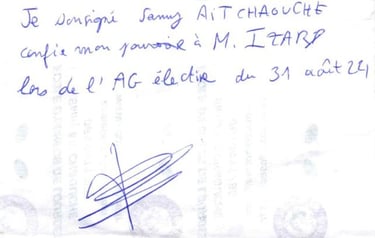 Je sousigné Samy AÏT CHAOUCHE
confie mon pouvoir à M. IZARD
lors de l'AG élective du 31 août 24